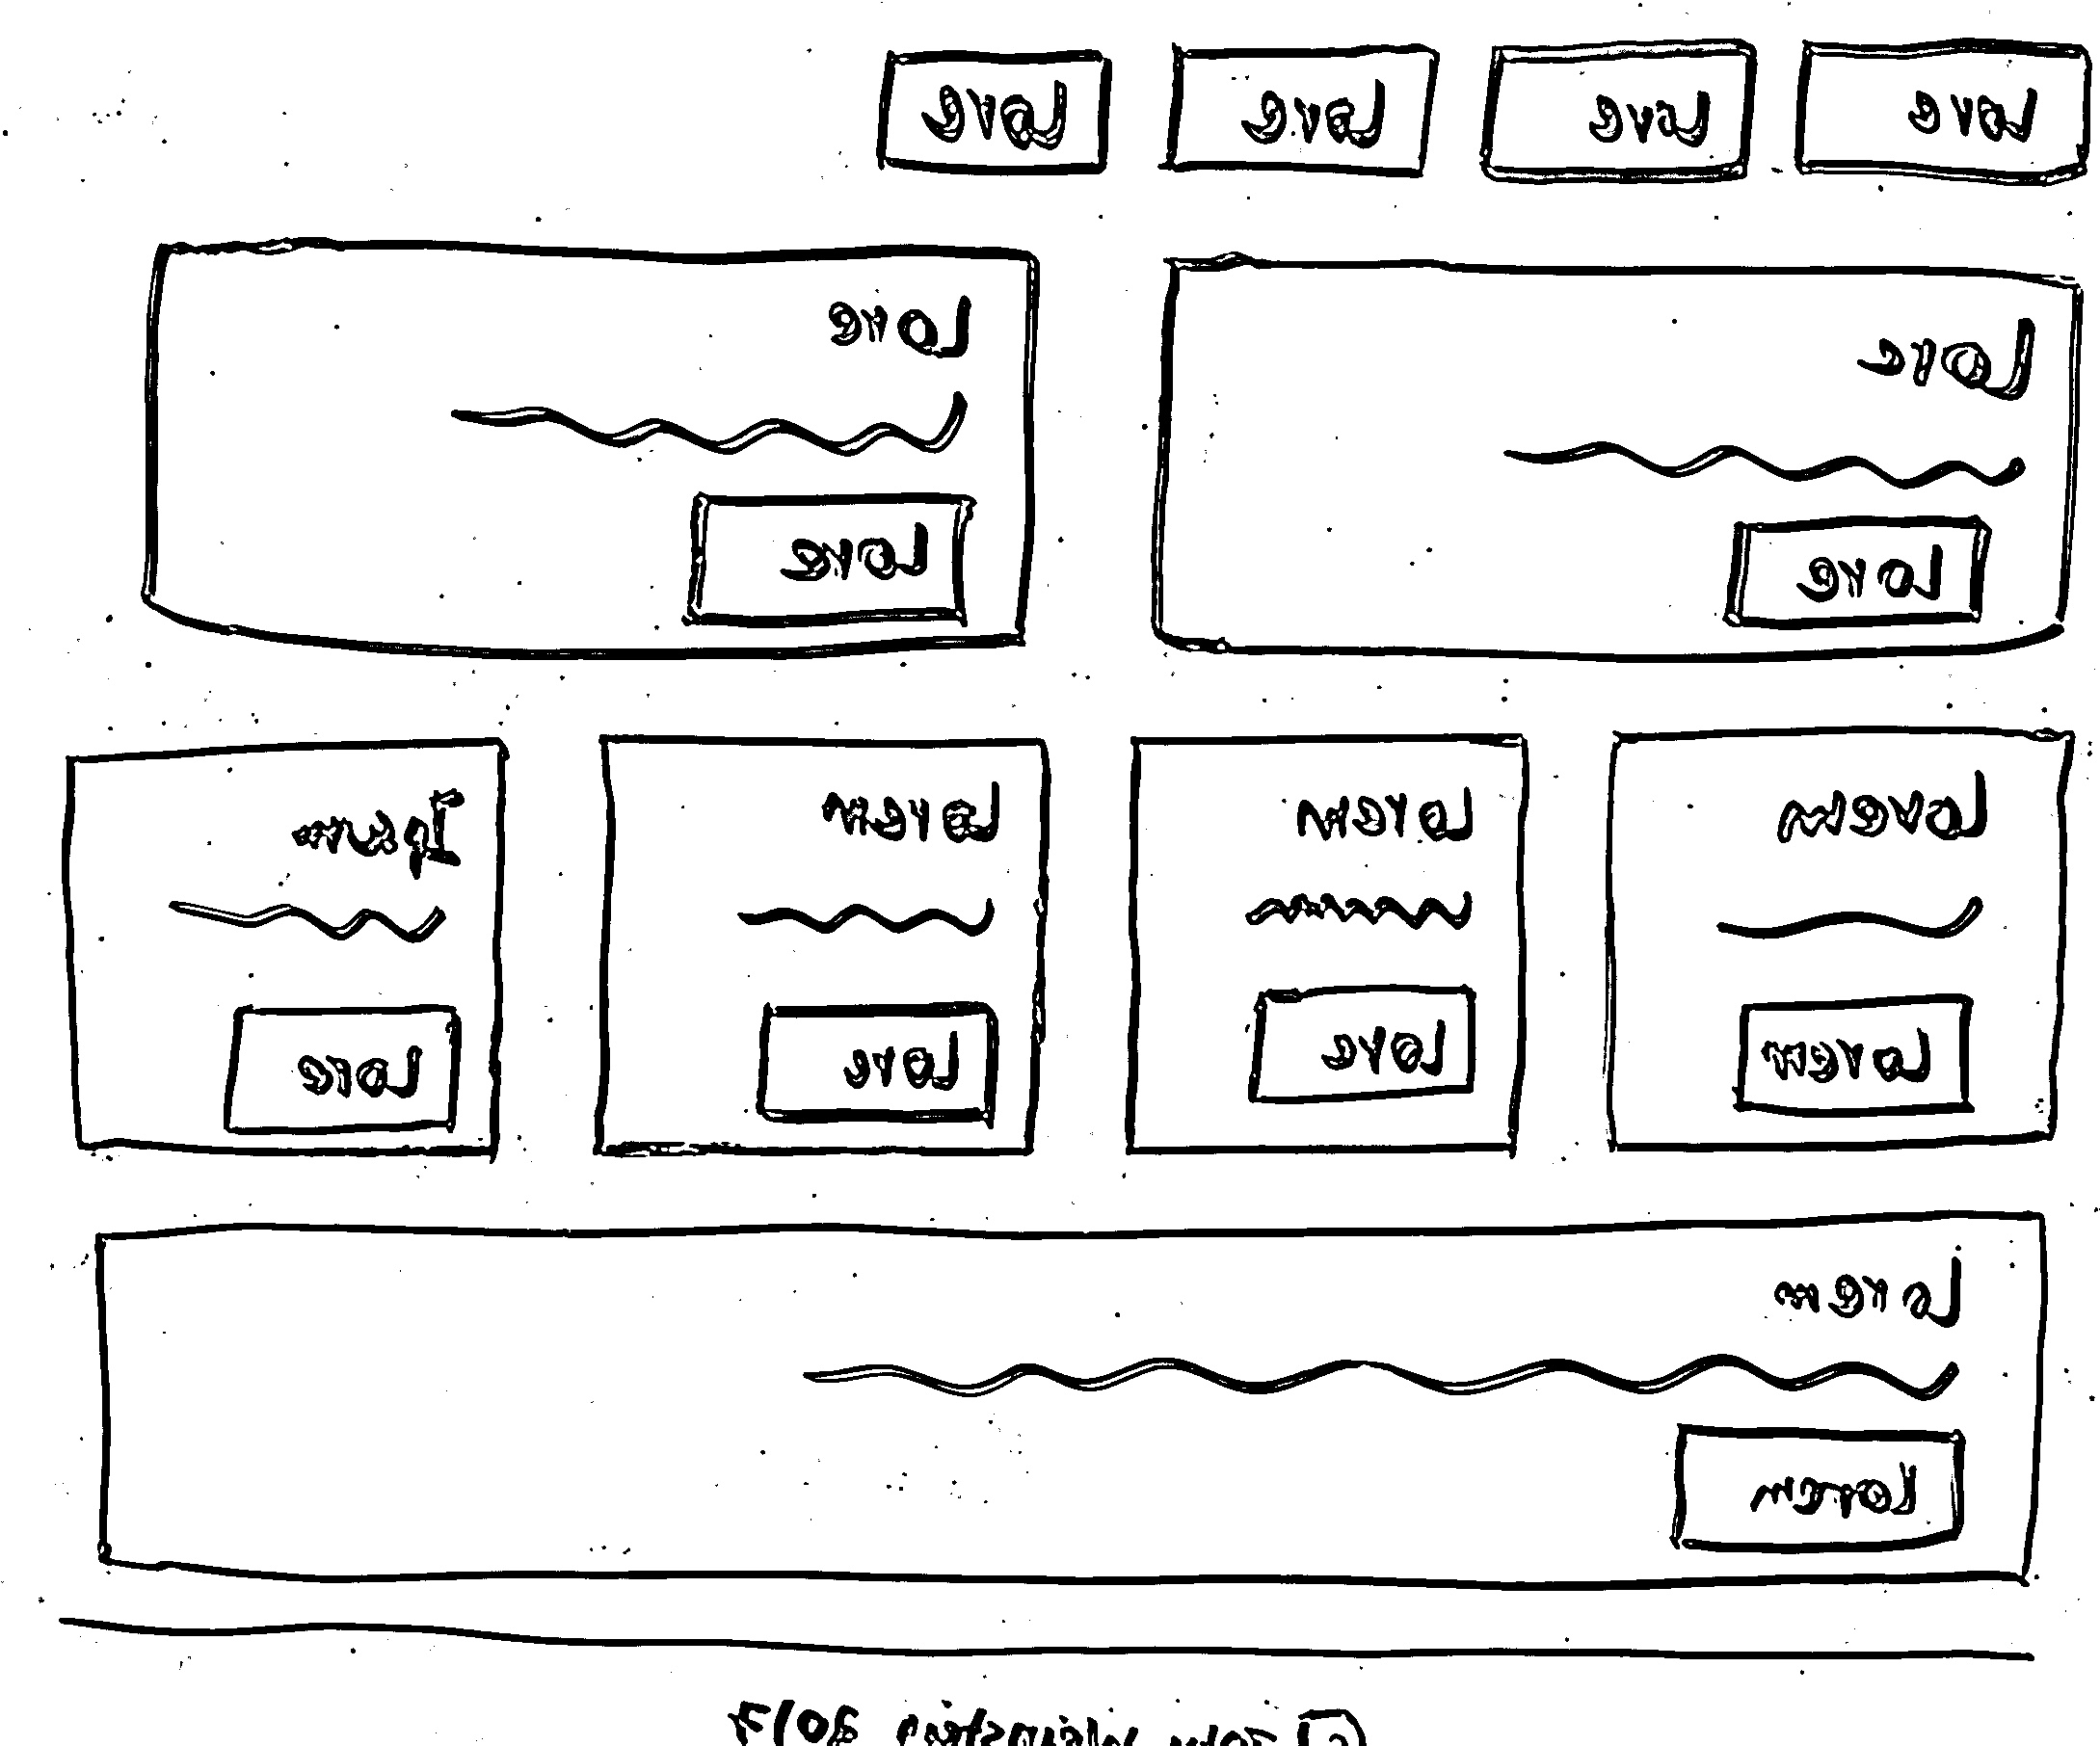 Lore Lore Lore Lore
Lore Lore
Lore Lore
Lorem Lorem Lorem Ipsum
Lorem Lore Lore Lore
Lorem
Lorem
© John Weinstein 2017